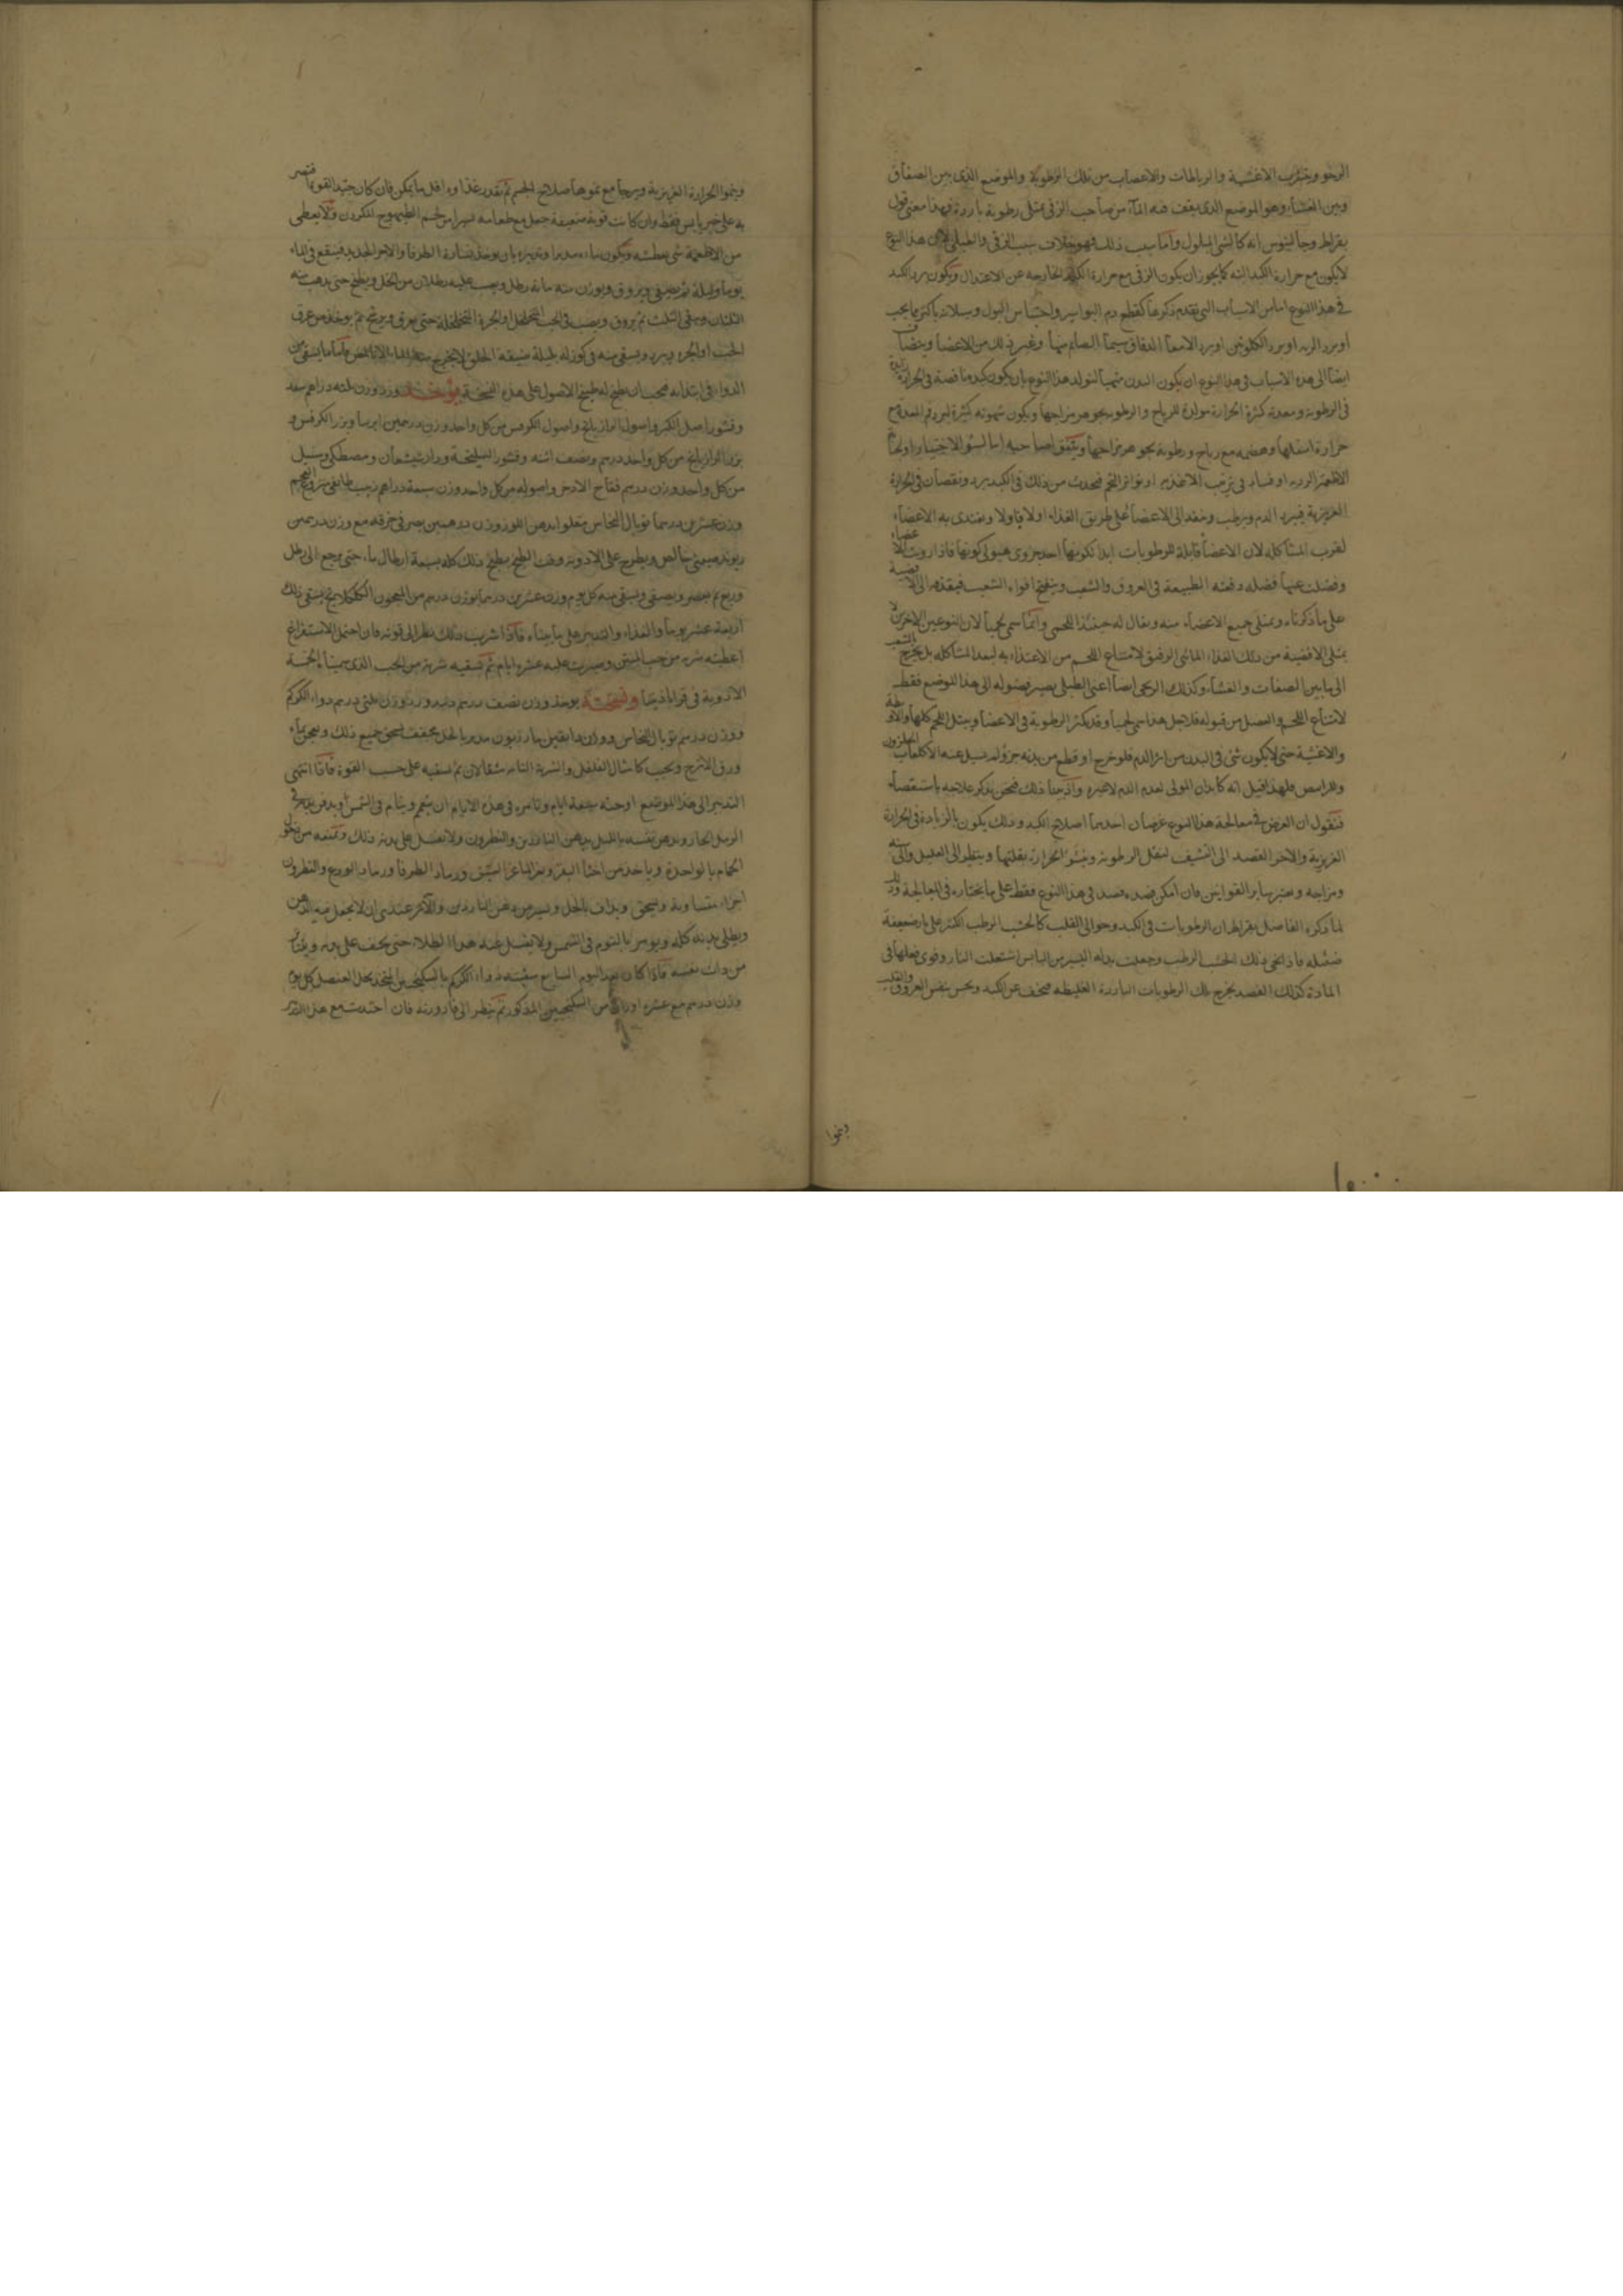 الرخو ويشرب الاغشية والرباطات والاعصاب من تلك الرطوبة والموضع الذى بين الصفاق
وبين الغشاء وهو الموضع الذى يقف فيه الماء من صاحب الزقى يمتلى رطوبة باردة فهذا معنى قول
بقراط وجالينوس انه كالشى المبلول واما سبب ذلك فهو خلاف سبب الزقى والطبلى لان هذا النوع
لا يكون مع حرارة الكبد البتة كما يجوز ان يكون الزقى مع حرارة الكبد الخارجة عن الاعتدال ويكون برد الكبد
فى هذا النوع اما من الاسباب التى تقدم ذكرها كقطع دم البواسير واحتباس البول وسيلانه باكثر ما يجب
او برد الرية او برد الكلوتين او برد الامعا الدقاق سيما الصايم منها وغير ذلك من الاعضا ويضاف
ايضا الى هذه الاسباب فى هذا النوع ان يكون البدن متهيأ لتولد هذا النوع بان يكون كبده ناقصة فى الحرارة زايدة
فى الرطوبة ومعدته كثيرة الحرارة مولدة للرياح والرطوبة بجوهر مزاجها ويكون شهوته كثيرة لبرد فم المعدة مع
حرارة اسفلها وهضمه مع رياح ورطوبة بجوهر مزاجها ويتفق لصاحبه اما لسؤ الاختيار او لحاجة
الاطعمة الردية او فساد فى ترتيب الاغذية او تواتر التخم فيحدث من ذلك فى الكبد برد ونقصان فى الحرارة
الغريزية فيبرد الدم ويرطب وينفد الى الاعضا على طريق الغذاء اولا فاولا ويغتدى به الاعضاء
لقرب المشاكلة لان الاعضا قابلة للرطوبات ابدا لكونها احد جزوى هيولى كونها فاذا رويت الاعضاء
وفضلت عنها فضلة دفعته الطبيعة فى العروق والشعب وينفتح افواه الشعب فيقذفه الى الافضية
على ما ذكرناه ويمتلى جميع الاعضاء منه ويقال له حينئذ اللحمى وانما سمى لحميا لان النوعين الاخرين لا
يمتلى الافضية من ذلك الغذاء المائى الرقيق لامتناع اللحم من الاغتذاء به لبعد المشاكلة بل يخرج الشعب
الى ما بين الصفاق والغشاء وكذلك الريحى ايضا اعنى الطبلى يصير فضوله الى هذا الموضع فقط
لامتناع اللحم والعضل من قبوله فلاجل هذا سمى لحميا وقد يكثر الرطوبة فى الاعضا ويبتل اللحم كلها والاوعية
والاغشية حتى لا يكون شى فى البدن من اثر الدم فلو خرج او قطع من بدنه جزؤ لم يسل عنه الا كلعاب الحلزون
فلهذا قيل انه كابدان الموتى لعدم الدم لا غيره واذ بينا ذلك فنحن نذكر علاجه باستقصاء
فنقول ان الغرض فى معالجة هذا النوع غرضان احدهما اصلاح الكبد وذلك يكون بالزيادة فى الحرارة
الغريزية والاخر القصد الى التنشيف لتقل الرطوبة وينشؤ الحرارة بقلتها وينظر الى العليل والى سنه
ومزاجه ويعتبر ساير القوانين فان امكن فصده فصد فى هذا النوع فقط على ما نختاره فى المعالجة وذلك
لما ذكره الفاضل بقراط ان الرطوبات فى الكبد وحوالى القلب كالحشب الرطب الكثير على نار ضعيفة
ضئيلة فاذا نحى ذلك الحشب الرطب وجعلت بداله اليسير من اليابس اشتعلت النار وقوى فعلها فى
المادة كذلك الفصد يخرج تلك الرطوبات الباردة الغليظة فيخف عن الكبد ويحسن بنفس العروق والقلب
وينموا
وينموا الحرارة الغريزية ويرجا مع نموها صلاح الجسم ثم يقدر غذاوه اقل ما يمكن فان كان جيد القوة اقتصر
به على خبز يابس فقط وان كانت قوية ضعيفة جعل مع طعامه يسيرا من لحم الطيهوج الكردن ولا يعطى
من الاطعمة شى يعطشه ويكون ماءه مدبرا وتدبيره بان يوخذ نشارة الطرفا والاجر الجديد فينقع فى الماء
يوما وليلة ثم يصفى ويروق ويوزن منه ماية رطل ويصب عليه رطلان من الخل ويطبخ حتى يذهب منه
الثلثان ويبقى الثلث ثم يروق ويصب فى الحب او الجرة حتى يعرق ويرشح ثم يوخذ من عرق
الحب او الجرة ويبرد ويسقى منه فى كوز له بلبلة ضيقة الحلق لا يخرج منها الماء الا بالمص فاما ما يسقى من
الدواء فى ابتدايه فيجب ان يطبخ له طبيخ الاصول على هذه النسخة يوخذ ورد وزن ثلثه دراهم سعد
وقشور اصل الكبر واصول الرازيانج واصول الكرفس من كل واحد وزن درهمين ايرسا وبزر الكرفس و
بزر الرازيانج من كل واحد درهم ونصف اشنه وقشور السليخة ودارشيشعان ومصطكى وسنبل
من كل واحد وزن درهم فقاح الاذخر واصوله من كل واحد وزن سبعة دراهم زبيب طائفى منزوع العجم
وزن عشرين درهما توبال النحاس مقلوا بدهن اللوز وزن درهمين يصر فى خرقة مع وزن درهمين
ريوند صينى خالص ويطرح على الادوية وقت الطبخ يطبخ ذلك كله بسبعة ارطال ماء حتى يرجع الى رطل
وربع ثم يعصر ويصفى ويسقى منه كل يوم وزن عشرين درهما بوزن درهم من المعجون الكلكلانج يسقى ذلك
اربعة عشر يوما والغذاء والتدبير على ما بيناه فاذا شرب ذلك نظر الى قوته فان احتمل الاستفراغ
اعطيته شربة من حب المنتن وصبرت عليه عشرة ايام ثم تسقيه شربة من الحب الذى سميناه بخمسة
الادوية فى قراباديننا ونسخته يوخذ وزن نصف درهم وزن ثلثى درهم دواء الكركم
ووزن درهم توبال النحاس ووزن دانقين مازريون مدبر بالخل مجفف يسحق جميع ذلك ويعجن بماء
ورق الاترج ويحبب كامثال الفلفل والشربة التامه مثقالان ثم تسقيه على حسب القوة فاذا انتهى
التدبير الى هذا الموضع ارحته سبعة ايام وتامره فى هذه الايام ان ينام فى الشمس ويدفن بدنه فى
الرمل الحار ويدهن نفسه بالليل بدهن الناردين والنطرون ولا تغسل على بدنه ذلك وتمنعه من دخول
الحمام بالواحدة وياخذ من اخثا البقر وبعر الماعز العتيق ورماد الطرفا ورماد الودع والنطرون
اجزاء متساوية ويسحق ويداف بالخل ويسير من دهن الناردين والاكثر عندى ان لا يجعل فيه الدهن
ويطلى بدنه كله ويومر بالنوم فى الشمس ولا يغسل عنه هذا الطلاء حتى يجف على بدنه ويتناثر
من ذات نفسه فاذا كان بعد اليوم السابع سقيته دواء الكركم بالسكنجبين المتخذ بخل العنصل كل يوم
وزن درهم مع عشرة اوزان من السكنجبين المذكور ثم ينظر الى قارورته فان احتدت مع هذا التدبير